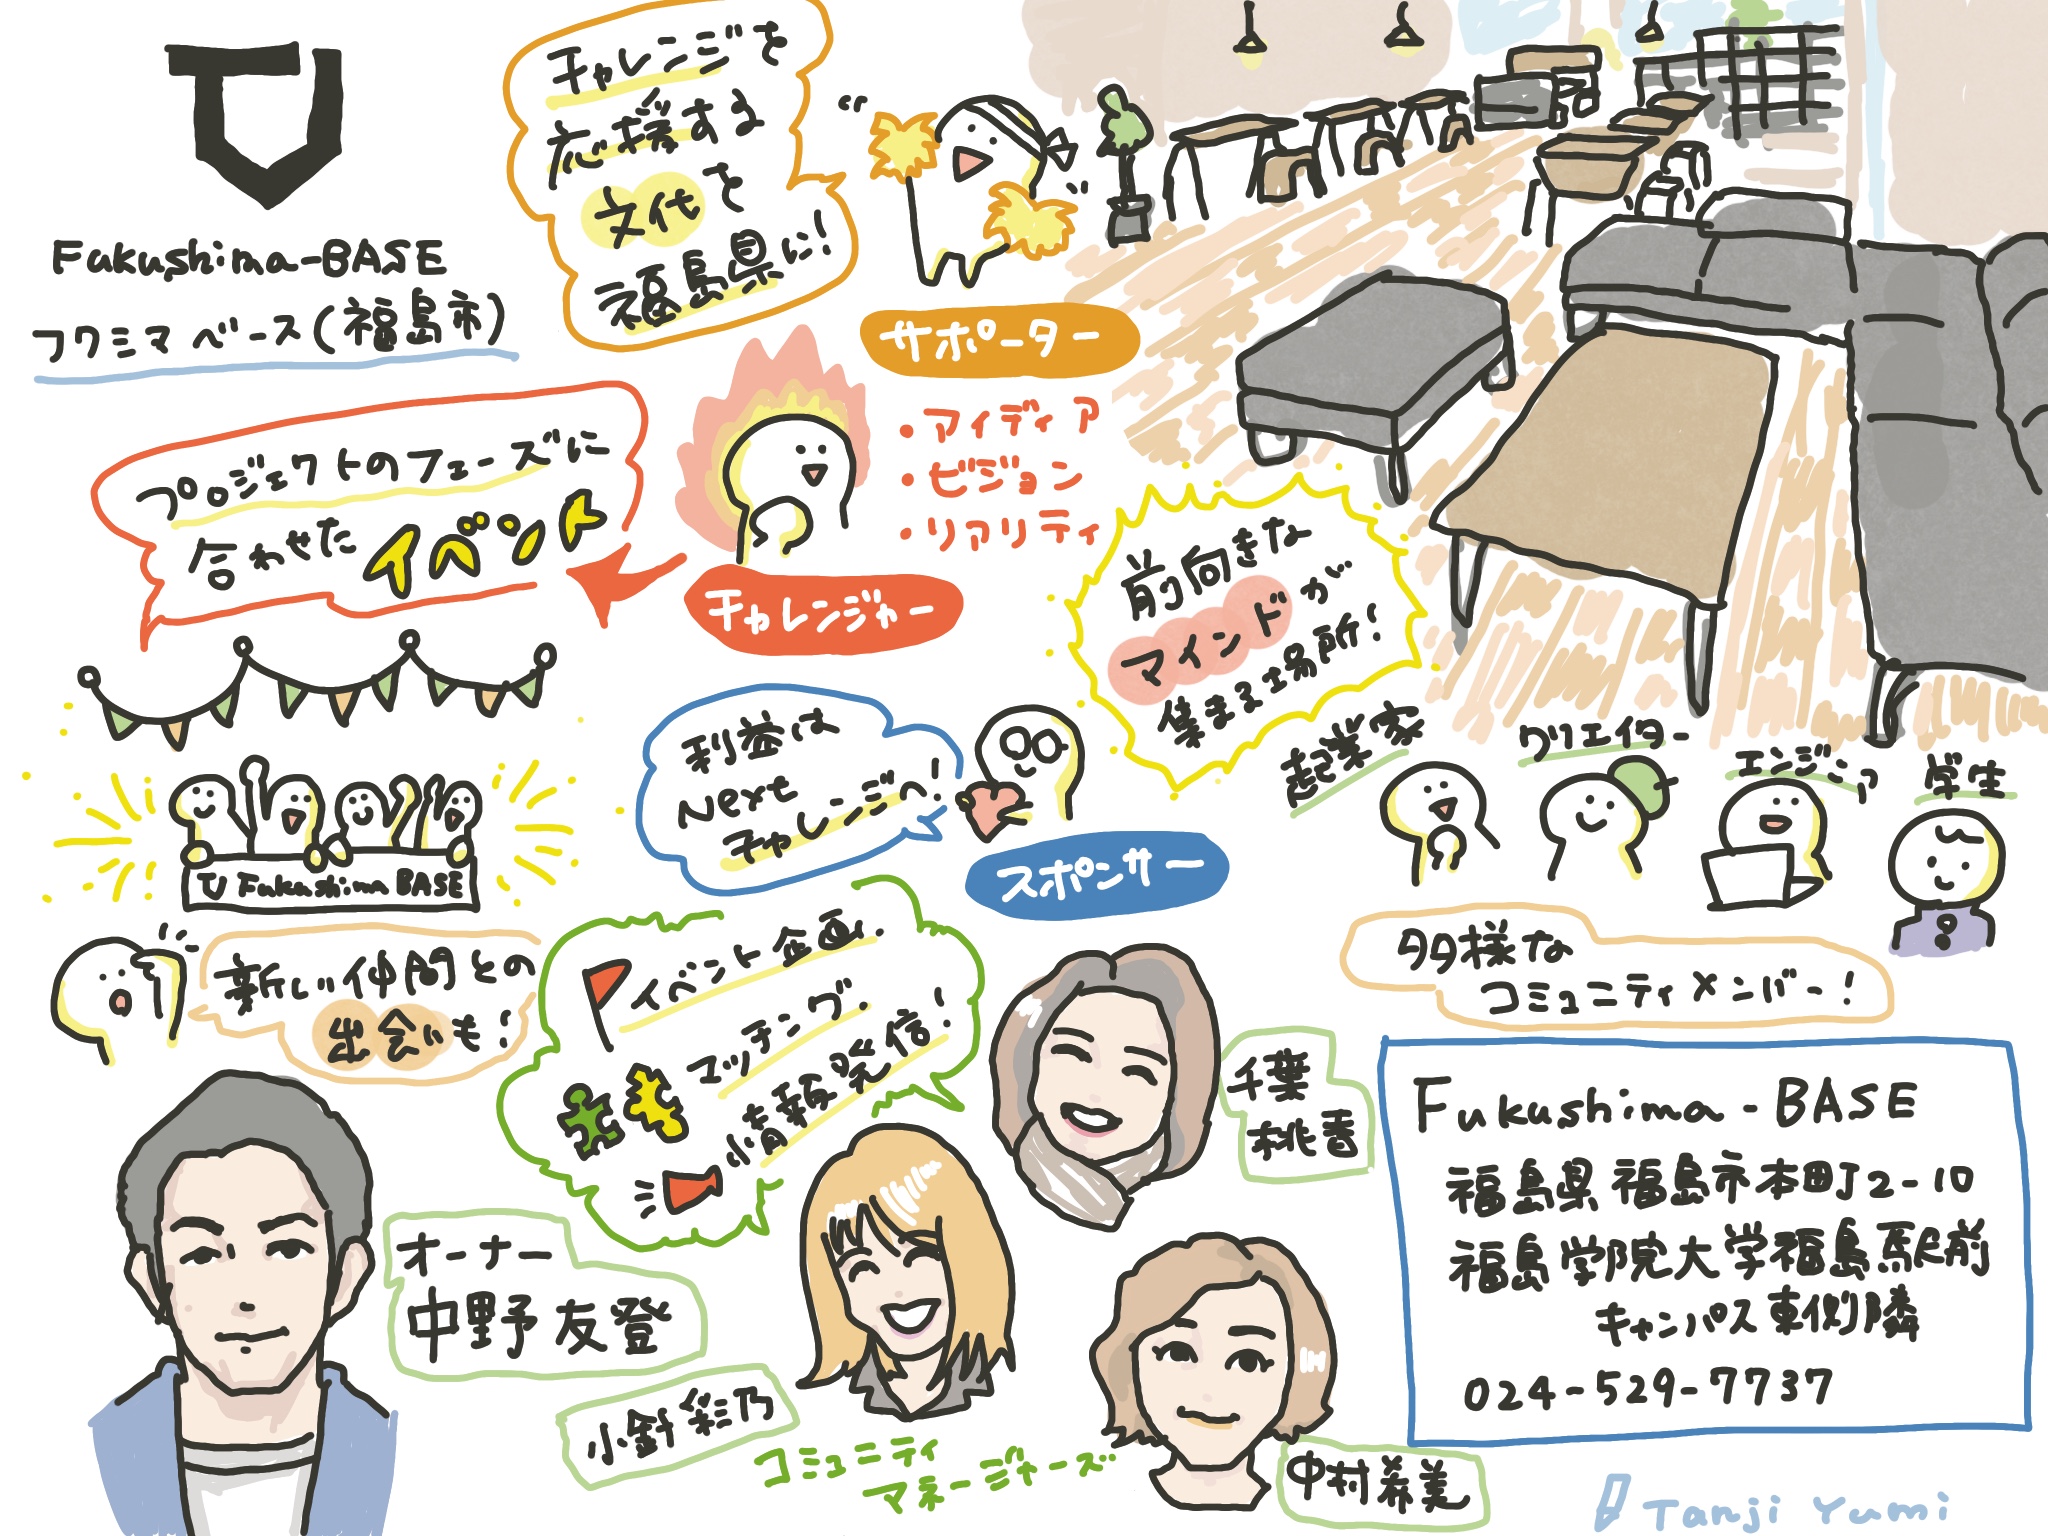 Fukushima-BASE
フクシマベース(福島市)
チャレンジを
応援する
文化を
福島県に!
サポーター
プロジェクトのフェーズに
合わせた イベント
・アイディア
・ビジョン
・リアリティ
チャレンジャー
前向きな
マインドが
集まる場所!
利益は
Next
チャレンジへ!
スポンサー
起業家
クリエイター
エンジニア
学生
多様な
コミュニティメンバー!
Fukushima BASE
新しい仲間との
出会いも!
イベント企画、
マッチング、
情報発信!
千葉
桃香
オーナー
中野 友登
小針 彩乃
コミュニティ
マネージャーズ
中村希美
Fukushima-BASE
福島県福島市本町2-10
福島学院大学福島駅前
キャンパス東側隣
024-529-7737
Tanji Yumi